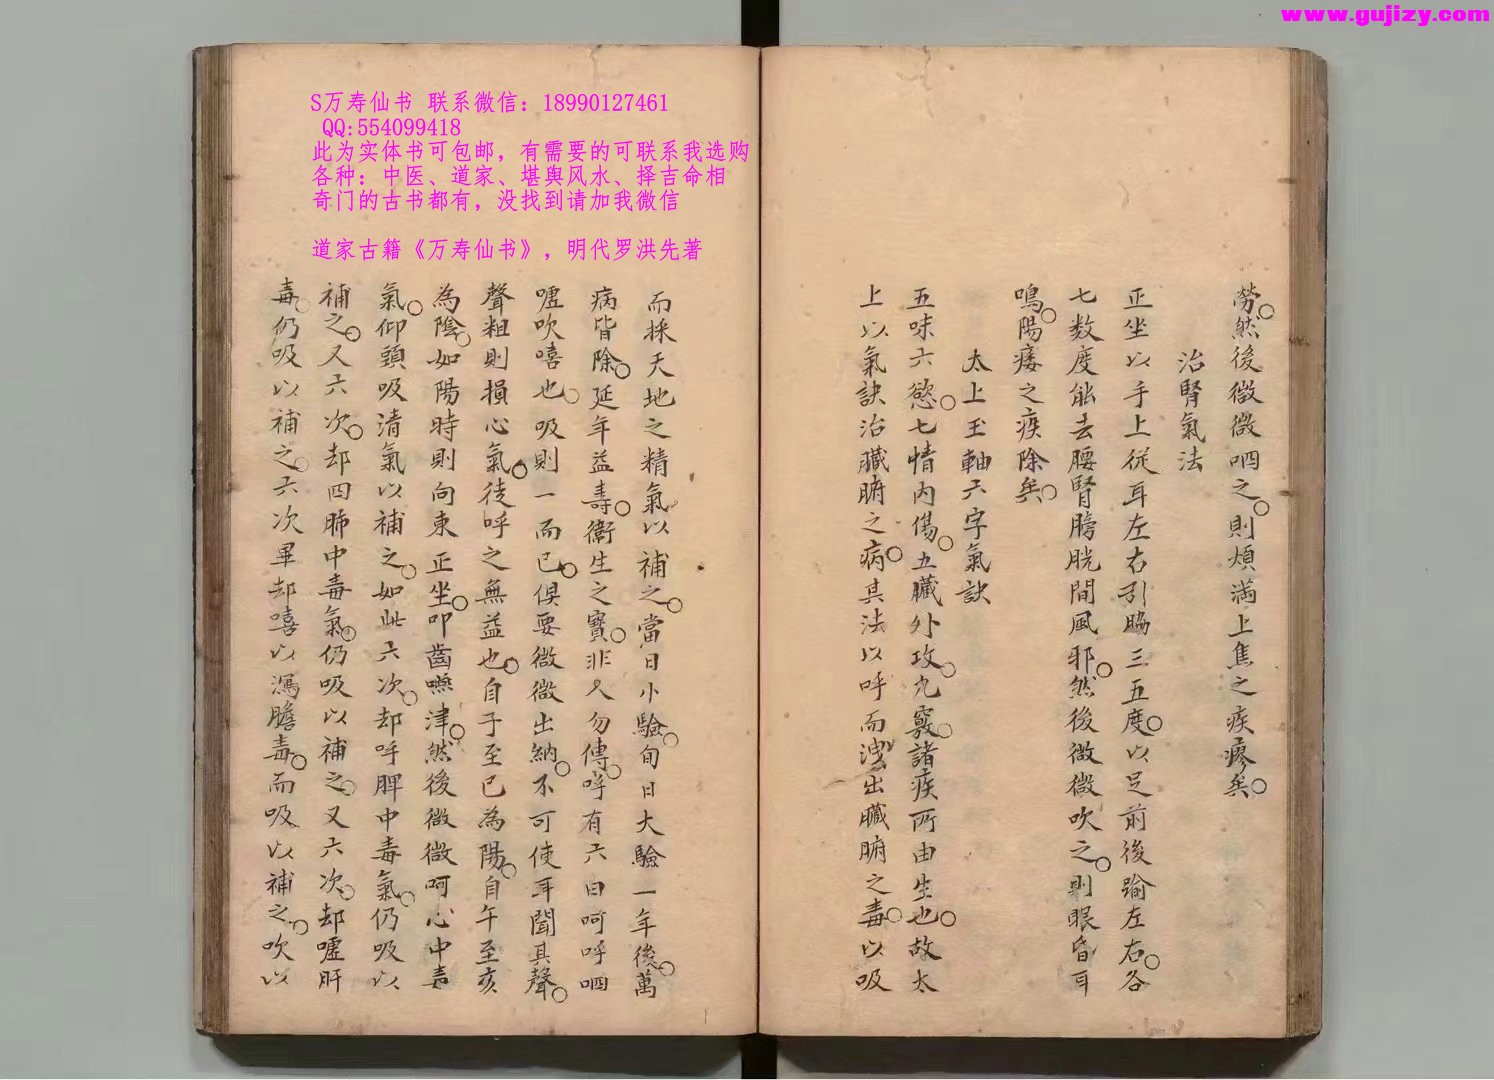 www.gujizy.com
S万寿仙书 联系微信：18990127461
QQ:554099418
此为实体书可包邮，有需要的可联系我选购
各种：中医、道家、堪舆风水、择吉命相
奇门的古书都有，没找到请加我微信
道家古籍《万寿仙书》，明代罗洪先著
勞。然後微微呬之。則煩滿上焦之疾瘳矣。
治腎氣法
正坐以手上從耳左右引脇三五度。以足前後踰左右。各
七数度能去腰腎膀胱間風邪。然後微微吹之。則眼昏耳
鳴。陽痿之疾除矣。
太上玉軸六字氣訣
五味六慾。七情內傷。五臟外攻。九竅。諸疾所由生也。故太
上以氣訣治臟腑之病。其法以呼而洩出臟腑之毒。以吸
而採天地之精氣以補之。當日小驗。旬日大驗一年後。萬
病皆除。延年益壽。衛生之寶。非人勿傳。呼有六曰呵呼呬
噓吹嘻也。吸則一而已。俱要微微出納。不可使耳聞其聲。
聲粗則損心氣。徒呼之無益也。自子至巳為陽。自午至亥
為陰。如陽時則向東正坐。叩齒嚥津。然後微微呵心中毒
氣。仰頭吸清氣以補之。如此六次。却呼脾中毒氣。仍吸以
補之。又六次。却呬肺中毒氣。仍吸以補之。又六次。却噓肝
毒。仍吸以補之。六次畢却嘻以瀉膽毒。而吸以補之。吹以